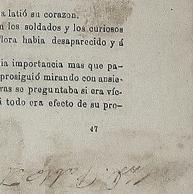 a latió su corazon.
n los soldados y los curiosos
flora habia desaparecido y á
ia importancia mas que pa-
prosiguió mirando con ansie-
ras se preguntaba si era víc-
i todo era efecto de su pro-
47